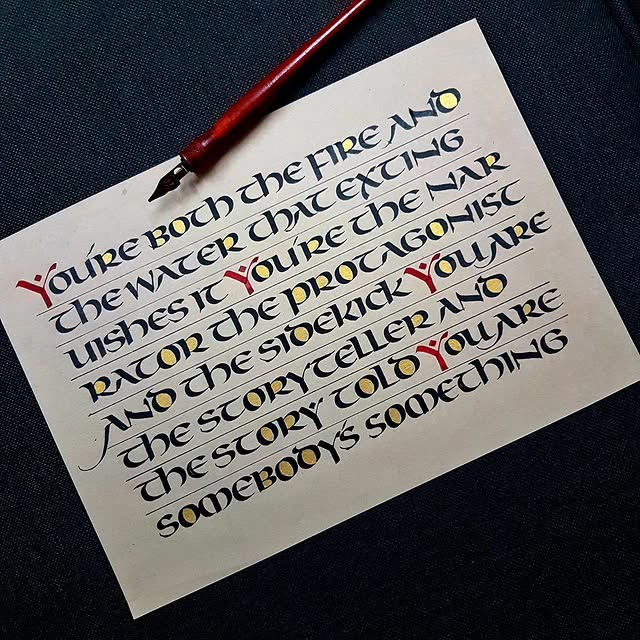 You're both the fire and
the water that exting
uishes it You're the nar
rator the protagonist
and the sidekick You are
the storyteller and
the story told You are
somebody's something